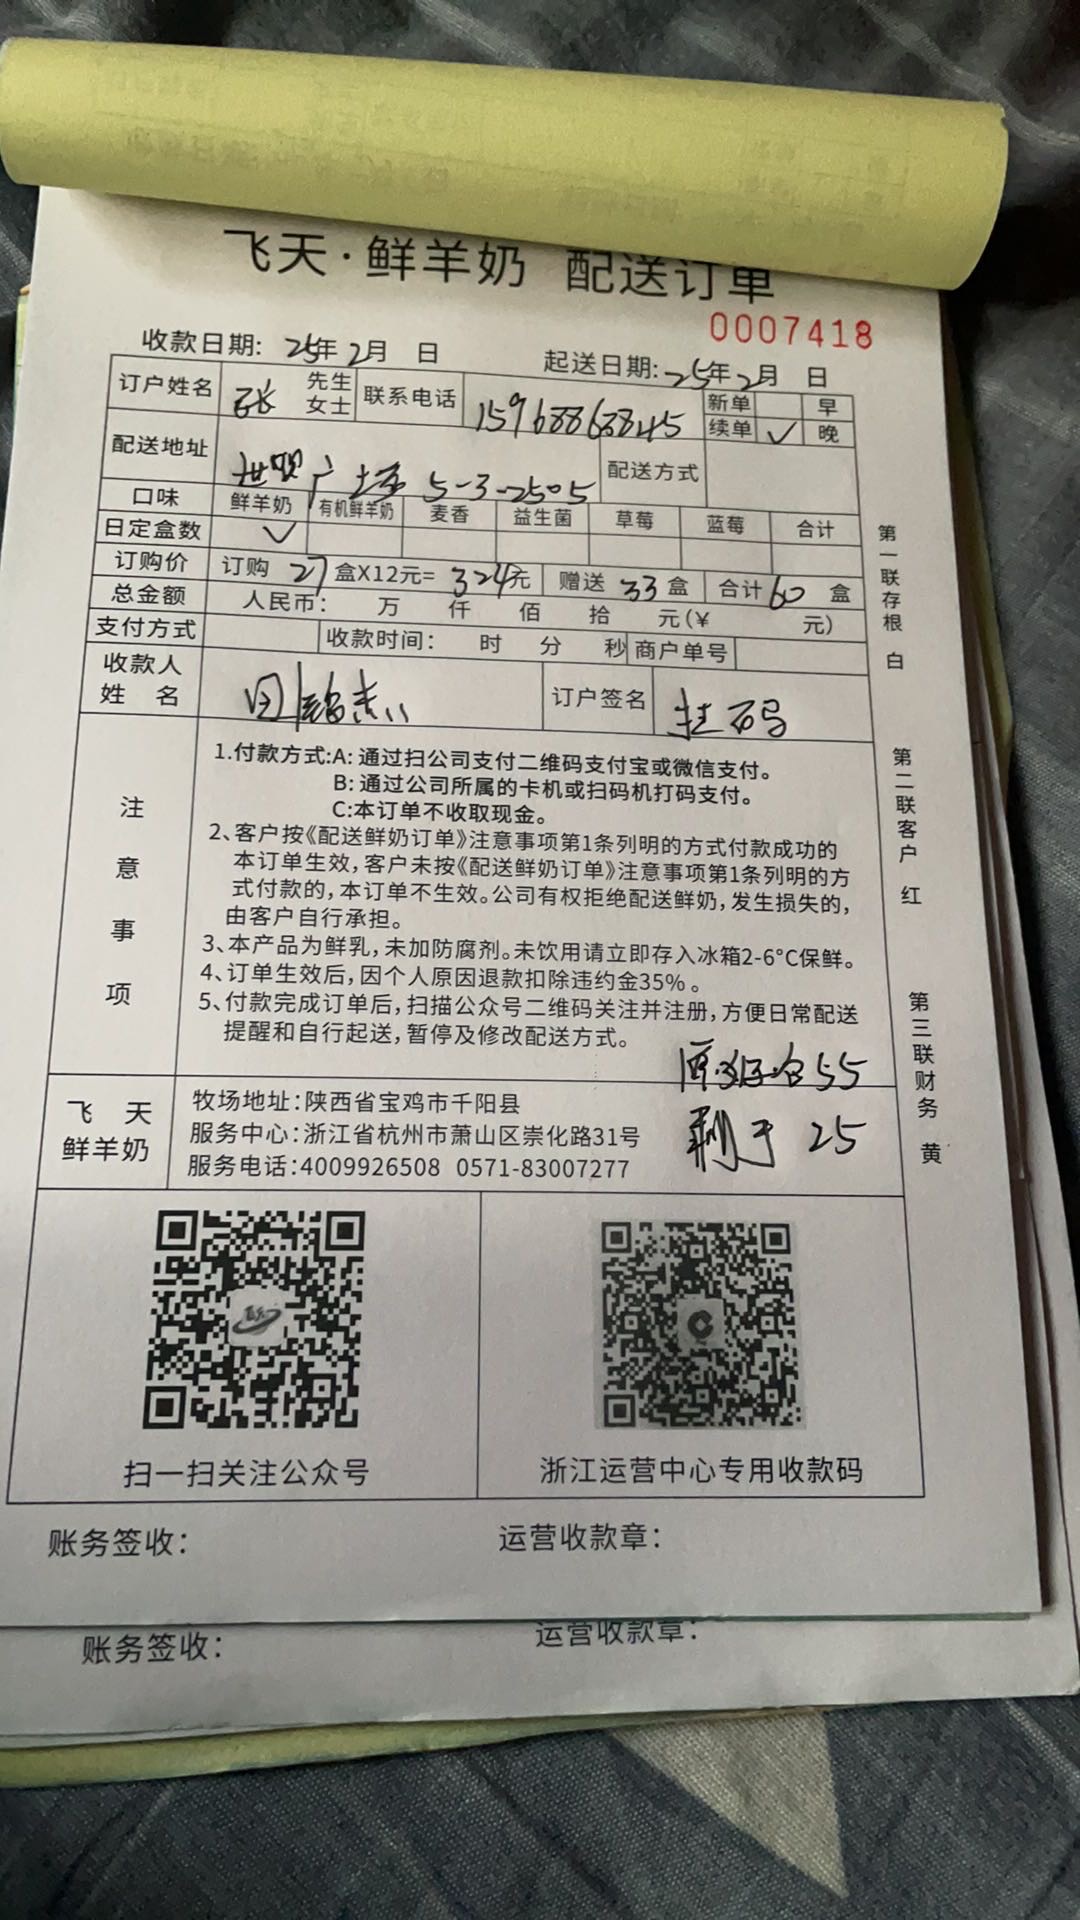 飞天·鲜羊奶 配送订单
0007418
收款日期: 25年2月 日 起送日期: 25年2月 日
订户姓名 张 先生 女士 联系电话 15968868845 新单 早
续单 ✓ 晚
配送地址 世贸广场 5-3-2505 配送方式
口味 鲜羊奶 有机鲜羊奶 麦香 益生菌 草莓 蓝莓 合计
日定盒数 ✓
订购价 订购 27 盒X12元= 324元 赠送 33 盒 合计 60 盒
总金额 人民币: 万 仟 佰 拾 元(¥ 元)
支付方式 收款时间: 时 分 秒 商户单号
收款人姓名 订户签名 挂码
注意事项
1.付款方式:A: 通过扫公司支付二维码支付宝或微信支付。
B: 通过公司所属的卡机或扫码机打码支付。
C:本订单不收取现金。
2、客户按《配送鲜奶订单》注意事项第1条列明的方式付款成功的
本订单生效,客户未按《配送鲜奶订单》注意事项第1条列明的方
式付款的,本订单不生效。公司有权拒绝配送鲜奶,发生损失的,
由客户自行承担。
3、本产品为鲜乳,未加防腐剂。未饮用请立即存入冰箱2-6°C保鲜。
4、订单生效后,因个人原因退款扣除违约金35%。
5、付款完成订单后,扫描公众号二维码关注并注册,方便日常配送
提醒和自行起送,暂停及修改配送方式。
55
25
飞天鲜羊奶
牧场地址:陕西省宝鸡市千阳县
服务中心:浙江省杭州市萧山区崇化路31号
服务电话:4009926508 0571-83007277
扫一扫关注公众号 浙江运营中心专用收款码
账务签收: 运营收款章:
账务签收: 运营收款章:
第一联存根 白
第二联客户 红
第三联财务 黄